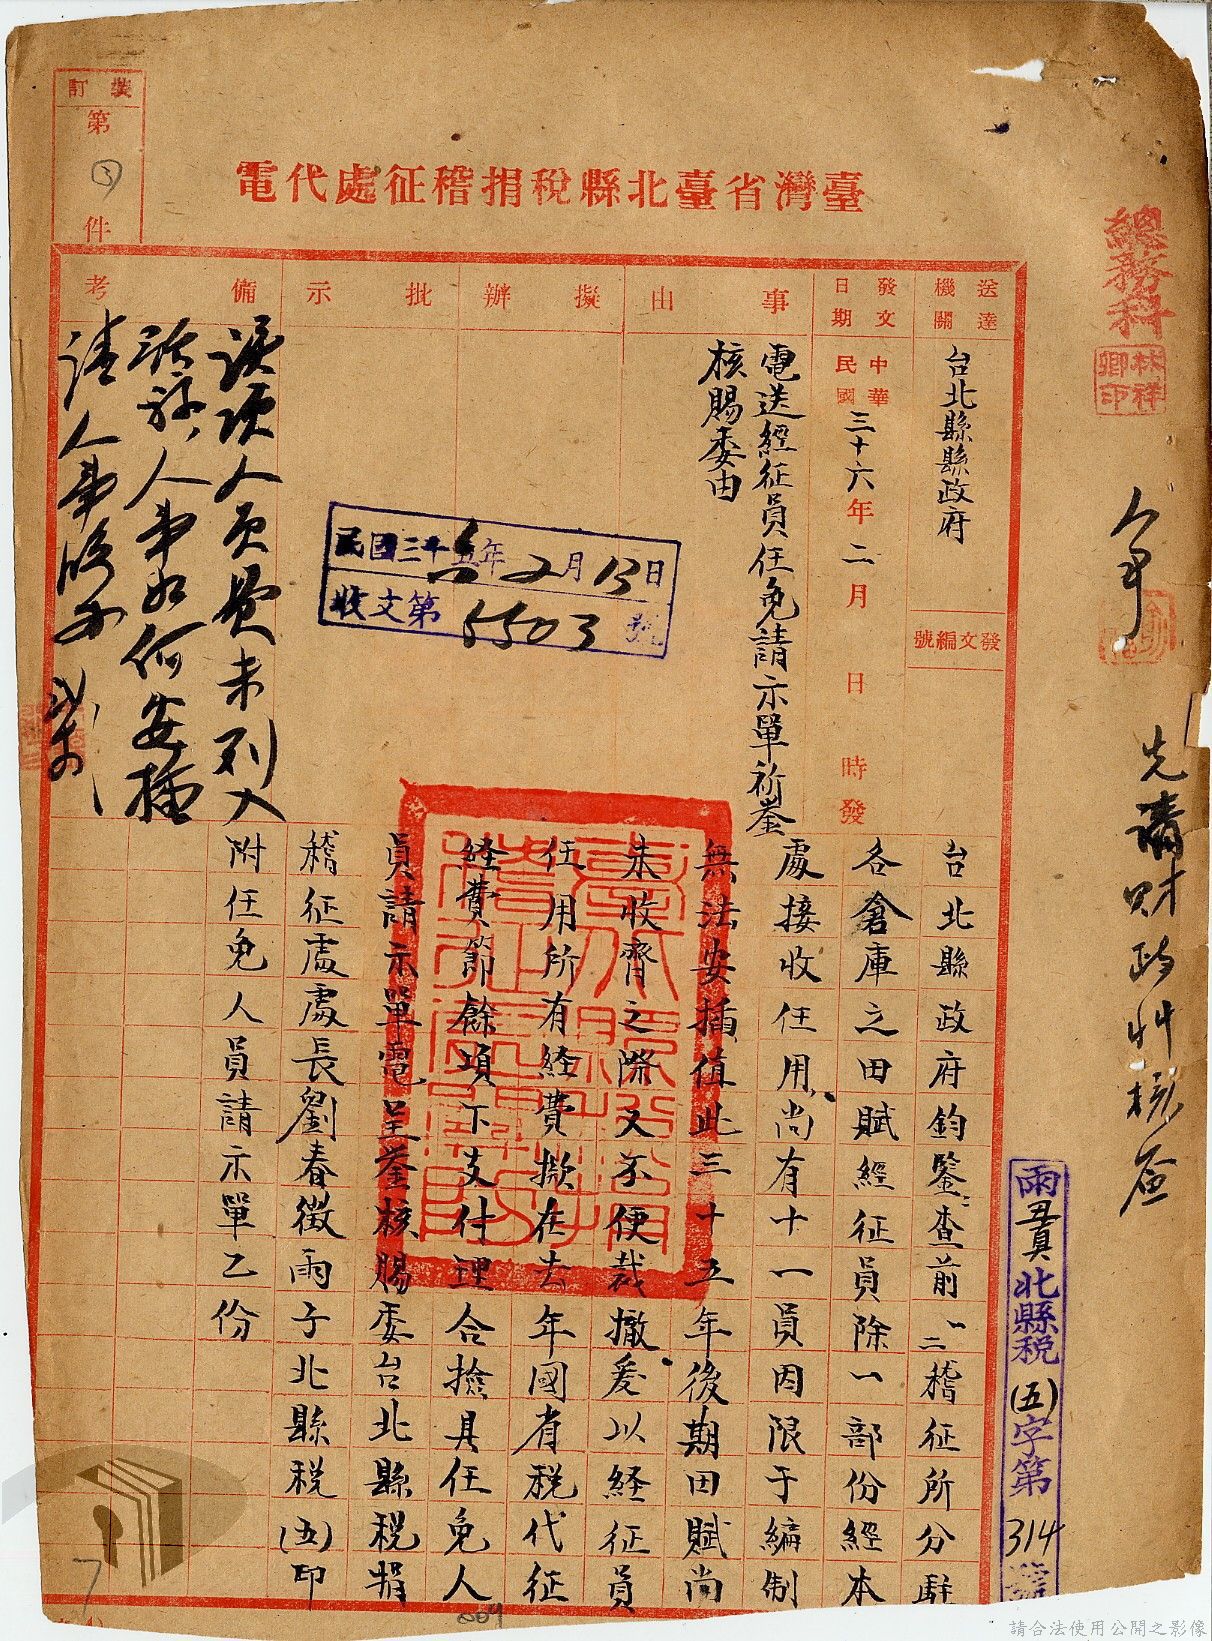 裝訂
第
③
件
臺灣省臺北縣稅捐稽征處代電
送達機關
台北縣縣政府
發文編號
發文日期
中華民國三十六年二月 日 時發
事由
電送經征員任免請示單祈鑒
核賜委由
擬辦
批示
備考
該項人員費未列入
人事如何安插
請人事股
民國三十五年2月13日
收文第5503號
台北縣政府鈞鑒：查前二稽征所分駐
各倉庫之田賦經征員除一部份經本
處接收任用尚有十一員因限于編制
無法安插值此三十五年後期田賦尚
未收齊之際又不便裁撤爰以経征員
任用所有経費擬在去年國省稅代征
経費節餘項下支付理合檢具任免人
員請示單電呈鑒核賜委台北縣稅捐
稽征處處長劉春徵雨子北縣稅(五)印
附任免人員請示單乙份
總務科
林祥卿印
人事
先請財政科核簽
雨丑真北縣稅(五)字第314號
004
7
請合法使用公開之影像